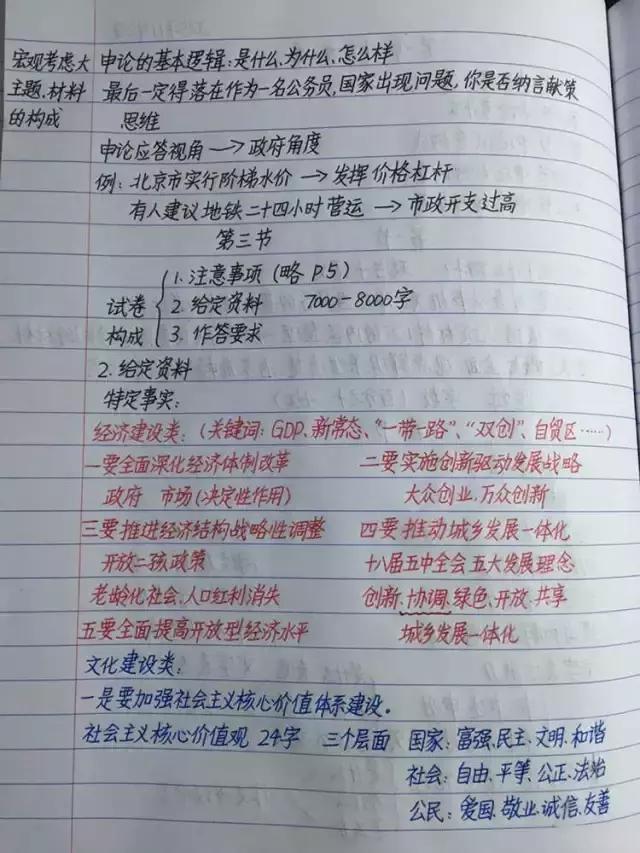 宏观考虑大 申论的基本逻辑:是什么、为什么、怎么样
主题、材料 最后一定得落在作为一名公务员,国家出现问题,你是否纳言献策
的构成 思维
申论应答视角→政府角度
例:北京市实行阶梯水价→发挥价格杠杆
有人建议地铁二十四小时营运→市政开支过高
第三节
1. 注意事项(略 P5)
试卷 2. 给定资料 7000-8000字
构成 3. 作答要求
2. 给定资料
特定事实:
经济建设类:(关键词:GDP、新常态、“一带一路”、“双创”、自贸区……)
一要全面深化经济体制改革 二要实施创新驱动发展战略
政府 市场(决定性作用) 大众创业,万众创新
三要推进经济结构战略性调整 四要推动城乡发展一体化
开放二孩政策 十八届五中全会 五大发展理念
老龄化社会、人口红利消失 创新、协调、绿色、开放、共享
五要全面提高开放型经济水平 城乡发展一体化
文化建设类:
一是要加强社会主义核心价值体系建设。
社会主义核心价值观 24字 三个层面 国家:富强、民主、文明、和谐
社会:自由、平等、公正、法治
公民:爱国、敬业、诚信、友善